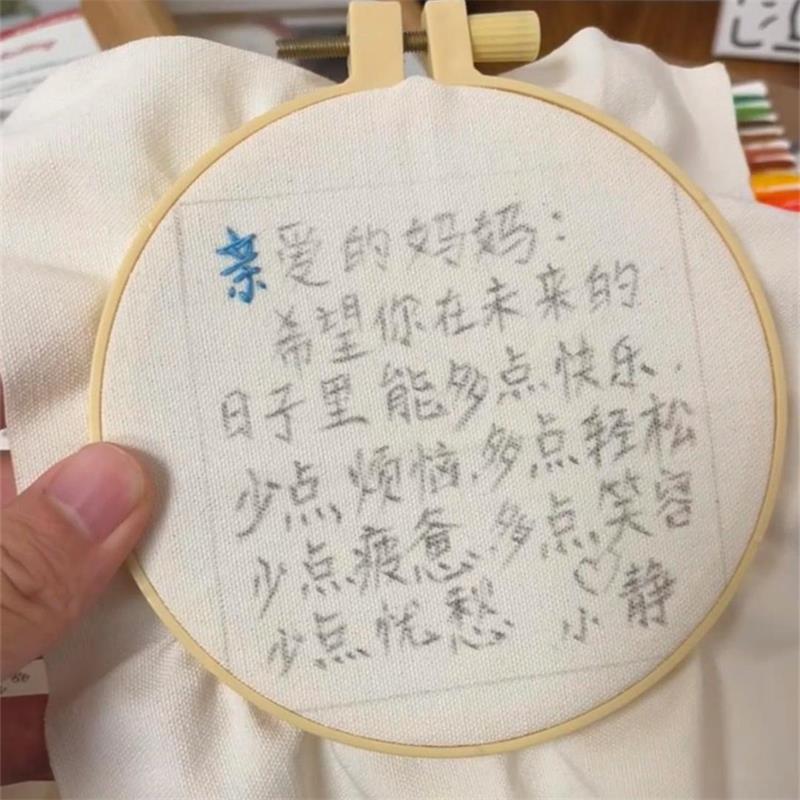 亲爱的妈妈：
希望你在未来的
日子里能多点快乐，
少点烦恼，多点轻松
少点疲惫，多点笑容
少点忧愁 ♡小静